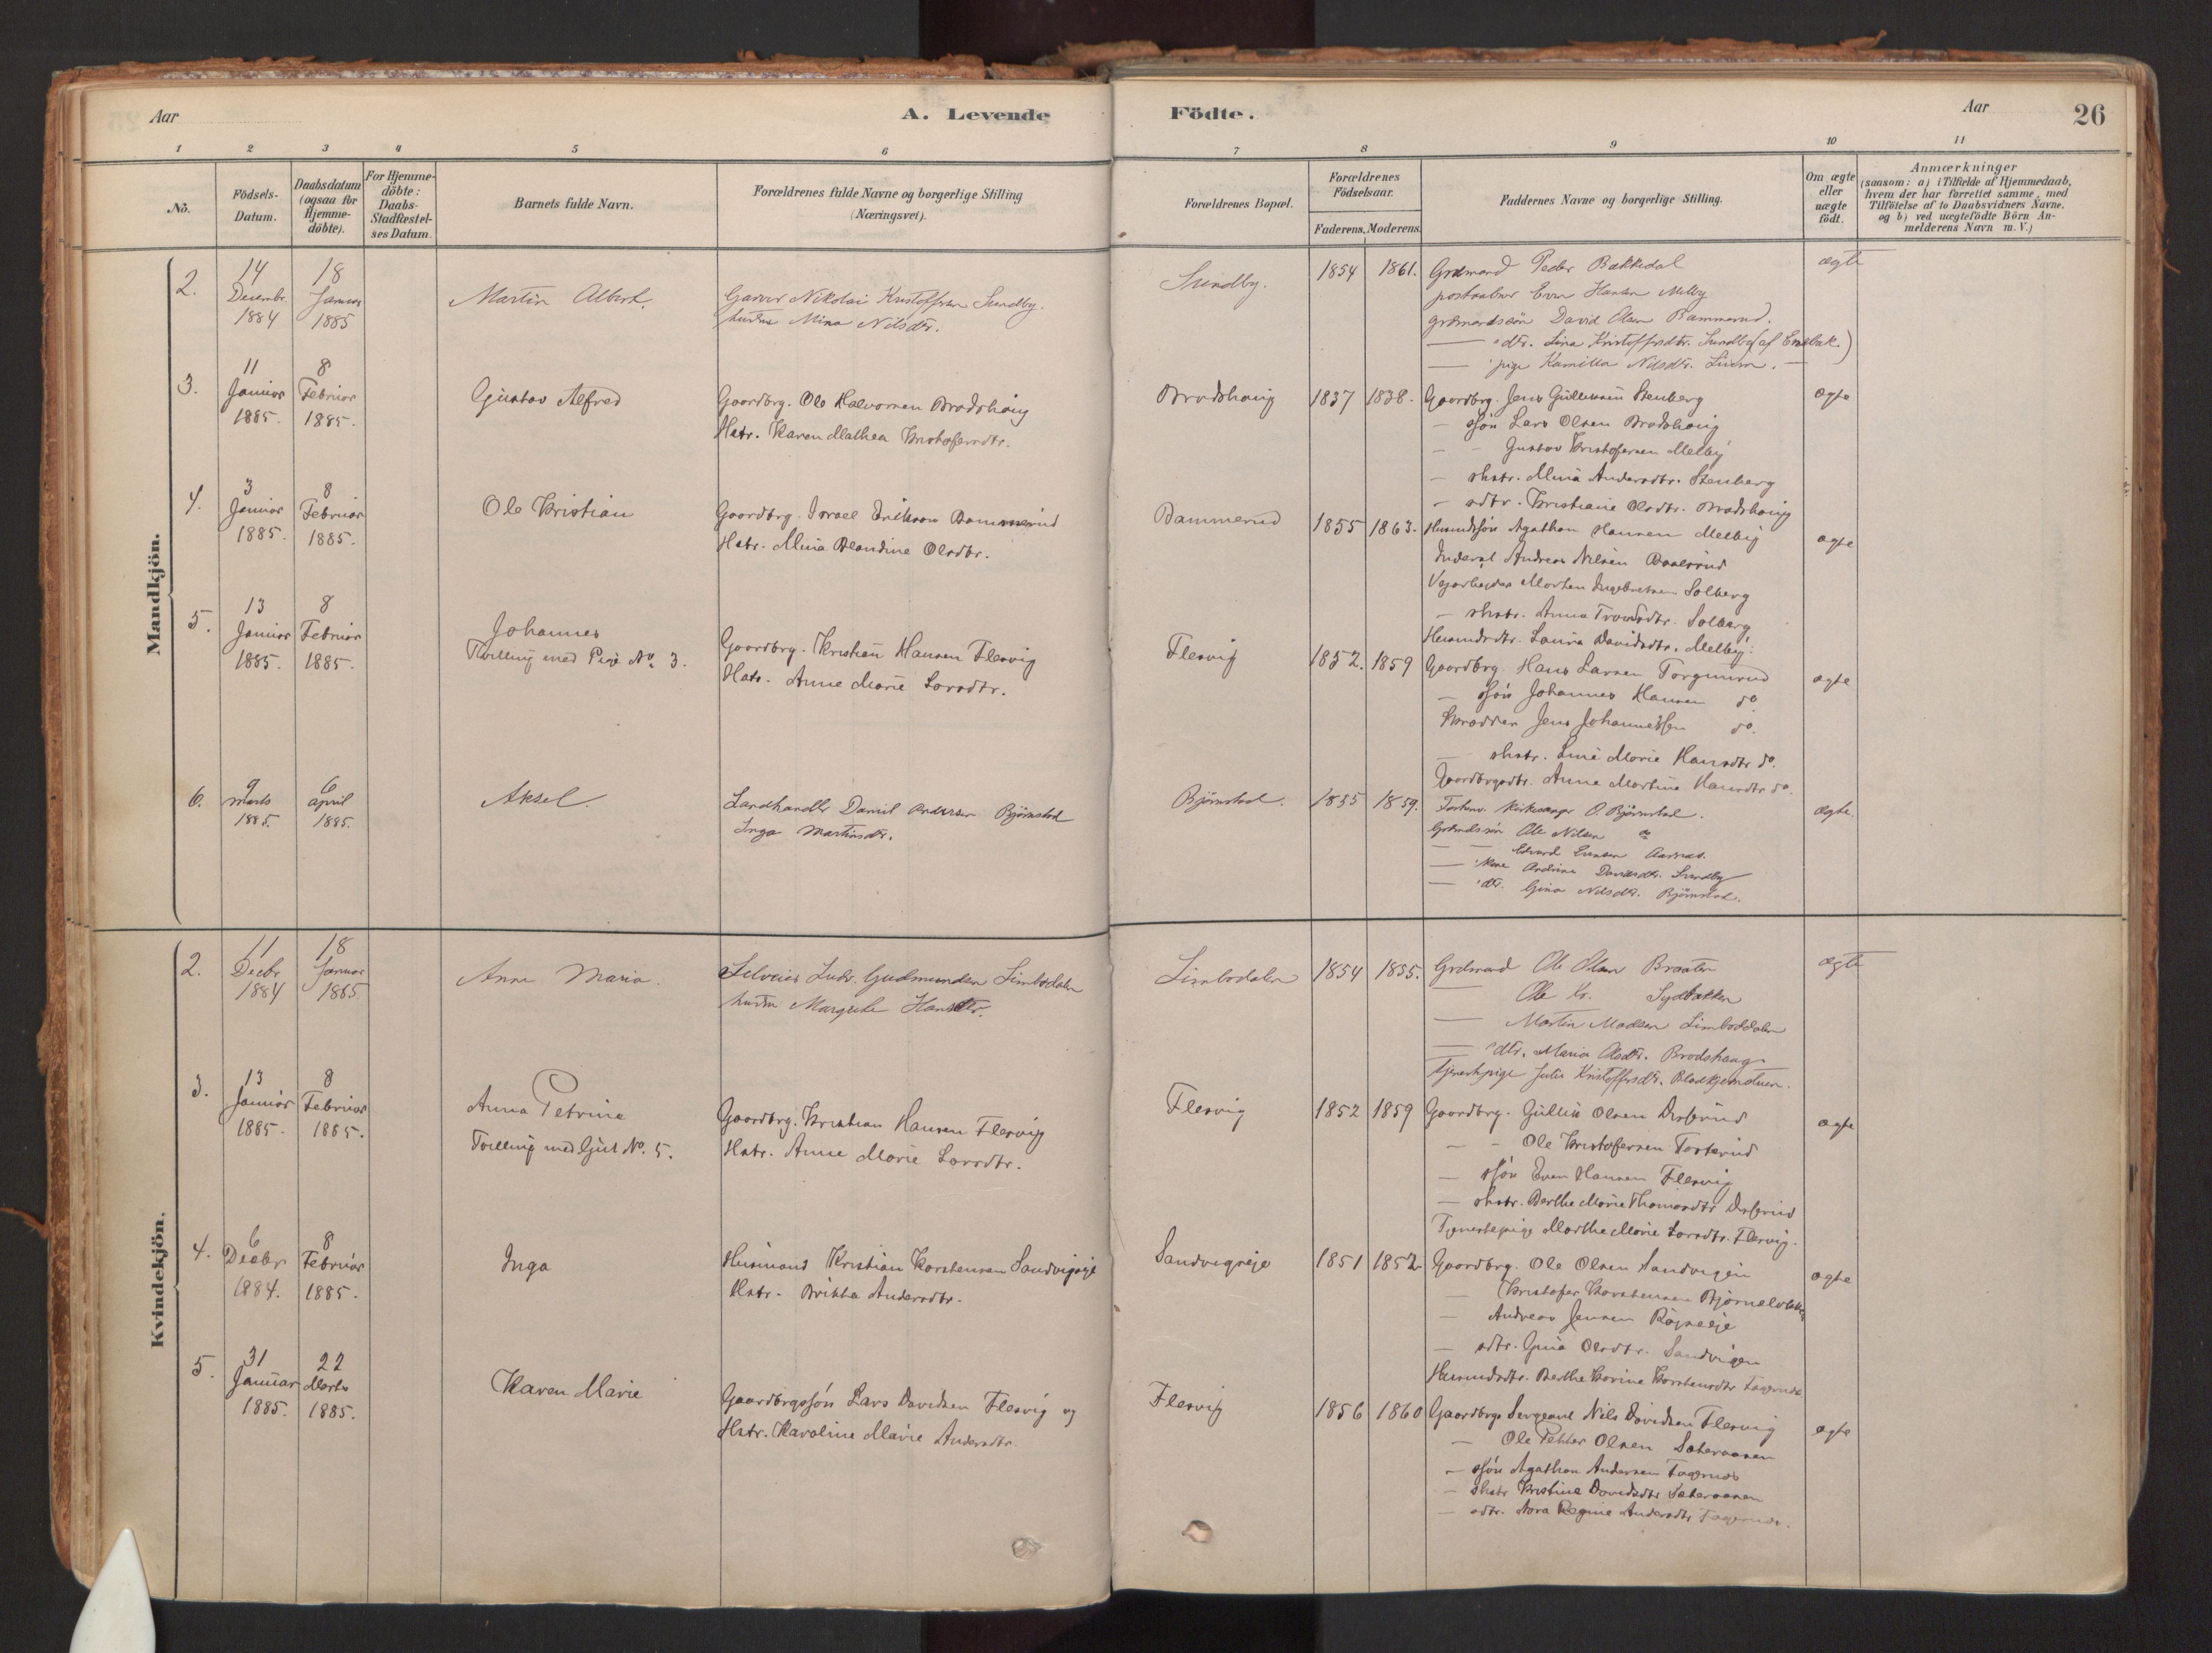 Aar
A. Levende
Födte.
Aar
26
1 2 3 4 5 6 7 8 9 10 11
No.
Födsels-Datum.
Daabsdatum (ogsaa for Hjemmedöbte).
For Hjemmedöbte: Daabs-Stadfæstelses Datum.
Barnets fulde Navn.
Forældrenes fulde Navne og borgerlige Stilling (Næringsvei).
Forældrenes Bopæl.
Forældrenes Födselsaar.
Faderens. Moderens.
Faddernes Navne og borgerlige Stilling.
Om ægte eller uægte födt.
Anmærkninger (saasom: a) i Tilfælde af Hjemmedaab, hvem der har forrettet samme, med Tilföielse af to Daabsvidners Navne. og b) ved uægtefödte Börn Anmelderens Navn m. V.)
Mandkjön.
2. 14 Decembr. 1884 18 Januar 1885 Martin Albert. Garver Nikolai Kristoffersen Sundby.
hustru Mina Nilsdtr.
Sundby. 1854 1861. Grdmand Peder Bakkedal ægte
postaabner Even Hansen Melby
grdmandssön David Olsen Bammerud.
— dtr. Lina Kristoffersdtr. Sundby (af Enebak.)
— pige Kamilla Nilsdtr. —
3. 11 Januar 1885. 8 Februar 1885. Gustav Alfred Gaardbrg. Ole Halvorsen Bradshaug
Hstr. Karen Mathea Kristofersdtr.
Bradshaug 1837 1838. Gaardbrg. Jens Gulliksen Stenberg ægte
— sön Lars Olsen Bradshaug
— - Gustav Kristofersen Melby
— shstr. Mina Andersdtr. Stenberg
— sdtr. Kristiane Olsdtr. Bradshaug
4. 3 Januar 1885. 8 Februar 1885. Ole Kristian Gaardbrg. Israel Eriksen Bammerud
Hstr. Mina Blandine Olsdtr.
Bammerud 1855 1863. Husmdssön Agathon Hansen Melby ægte
Inderst Andreas Nilsen
Vejarbejder Morten Ingebretsen Solberg
— shstr. Anna Solberg
Husmdsdtr. Laura Davidsdtr. Melby.
5. 13 Januar 1885. 8 Februar 1885. Johannes
Tvilling med Pige No. 3.
Gaardbrg. Kristian Hansen Flesvig
Hstr. Anne Marie Larsdtr.
Flesvig 1852. 1859 Gaardbrg. Hans Larsen Torgunrud ægte
— sön Johannes Hansen do
Jens Johannessen do.
— shstr. Line Marie Hansdtr do.
Gaardbrgsdtr. Anne Martine Hansdtr do.
6. 9 marts 1885. 6 april 1885. Aksel. Landhandler Daniel Andersen Bjørnstad
Inga Martinsdtr.
Bjørnstad. 1855 1859. Kirkesanger O. Bjørnstad. ægte.
Grdmdssön Ole Nilsen do
— — Edvard Evensen Aarnæs.
— kone Andrine Davidsdtr. Sundby
— dtr. Gina Nilsdtr. Bjørnstad.
Kvindekjön.
2. 11 Decbr 1884 18 Januar 1885 Anne Maria. Selveier Ludv. Gudmundsen Limbodalen
hustru Margrethe Hansdtr.
Limbodalen 1854 1855. Grdmand Ole Olsen Braaten ægte
— Ole Kr. Sydbakken
— Martin Madsen Limboddalen
— dtr. Maria Olsdtr. Brodshaug
tjenestpige Julie Kristoffersdtr. Bladkjendtuen.
3. 13 Januar 1885. 8 Februar 1885. Anna Petrine
Tvilling med Gut No. 5.
Gaardbrg. Kristian Hansen Flesvig
Hstr. Anne Marie Larsdtr.
Flesvig 1852 1859 Gaardbrg. Gullik Olsen Durferud ægte
— - Ole Kristofersen Tosterud
— sön Even Hansen Flesvig
— shstr. Berthe Marie Thomasdtr Durferud
Tjenestepige Marthe Marie Larsdtr. Flesvig.
4. 6 Decbr 1884. 8 Februar 1885. Inga Husmand Kristian Karstensen Sandvigseje
Hstr. Britta Andersdtr.
Sandvigseje 1851 1852 Gaardbrg. Ole Olsen Sandvigen ægte
— Kristofer Karstensen
— Andreas Jensen Röjseeje
— sdtr. Gina Olsdtr. Sandvigen
Husmdsdtr. Berthe Karine Karstensdtr Fagernæs
5. 31 Januar 1885. 22 Marts 1885. Karen Marie Gaardbrgssön Lars Davidsen Flesvig og
Hstr. Karoline Marie Andersdtr.
Flesvig 1856 1860 Gaardbrgs Sergeant Nils Davidsen Flesvig ægte
— Ole Petter Olsen Sæteraasen
— sön Agathon Andersen Fagernæs
— shstr Kristine Davidsdtr Sæteraasen
— sdtr. Nora Regine Andersdtr Fagernæs.